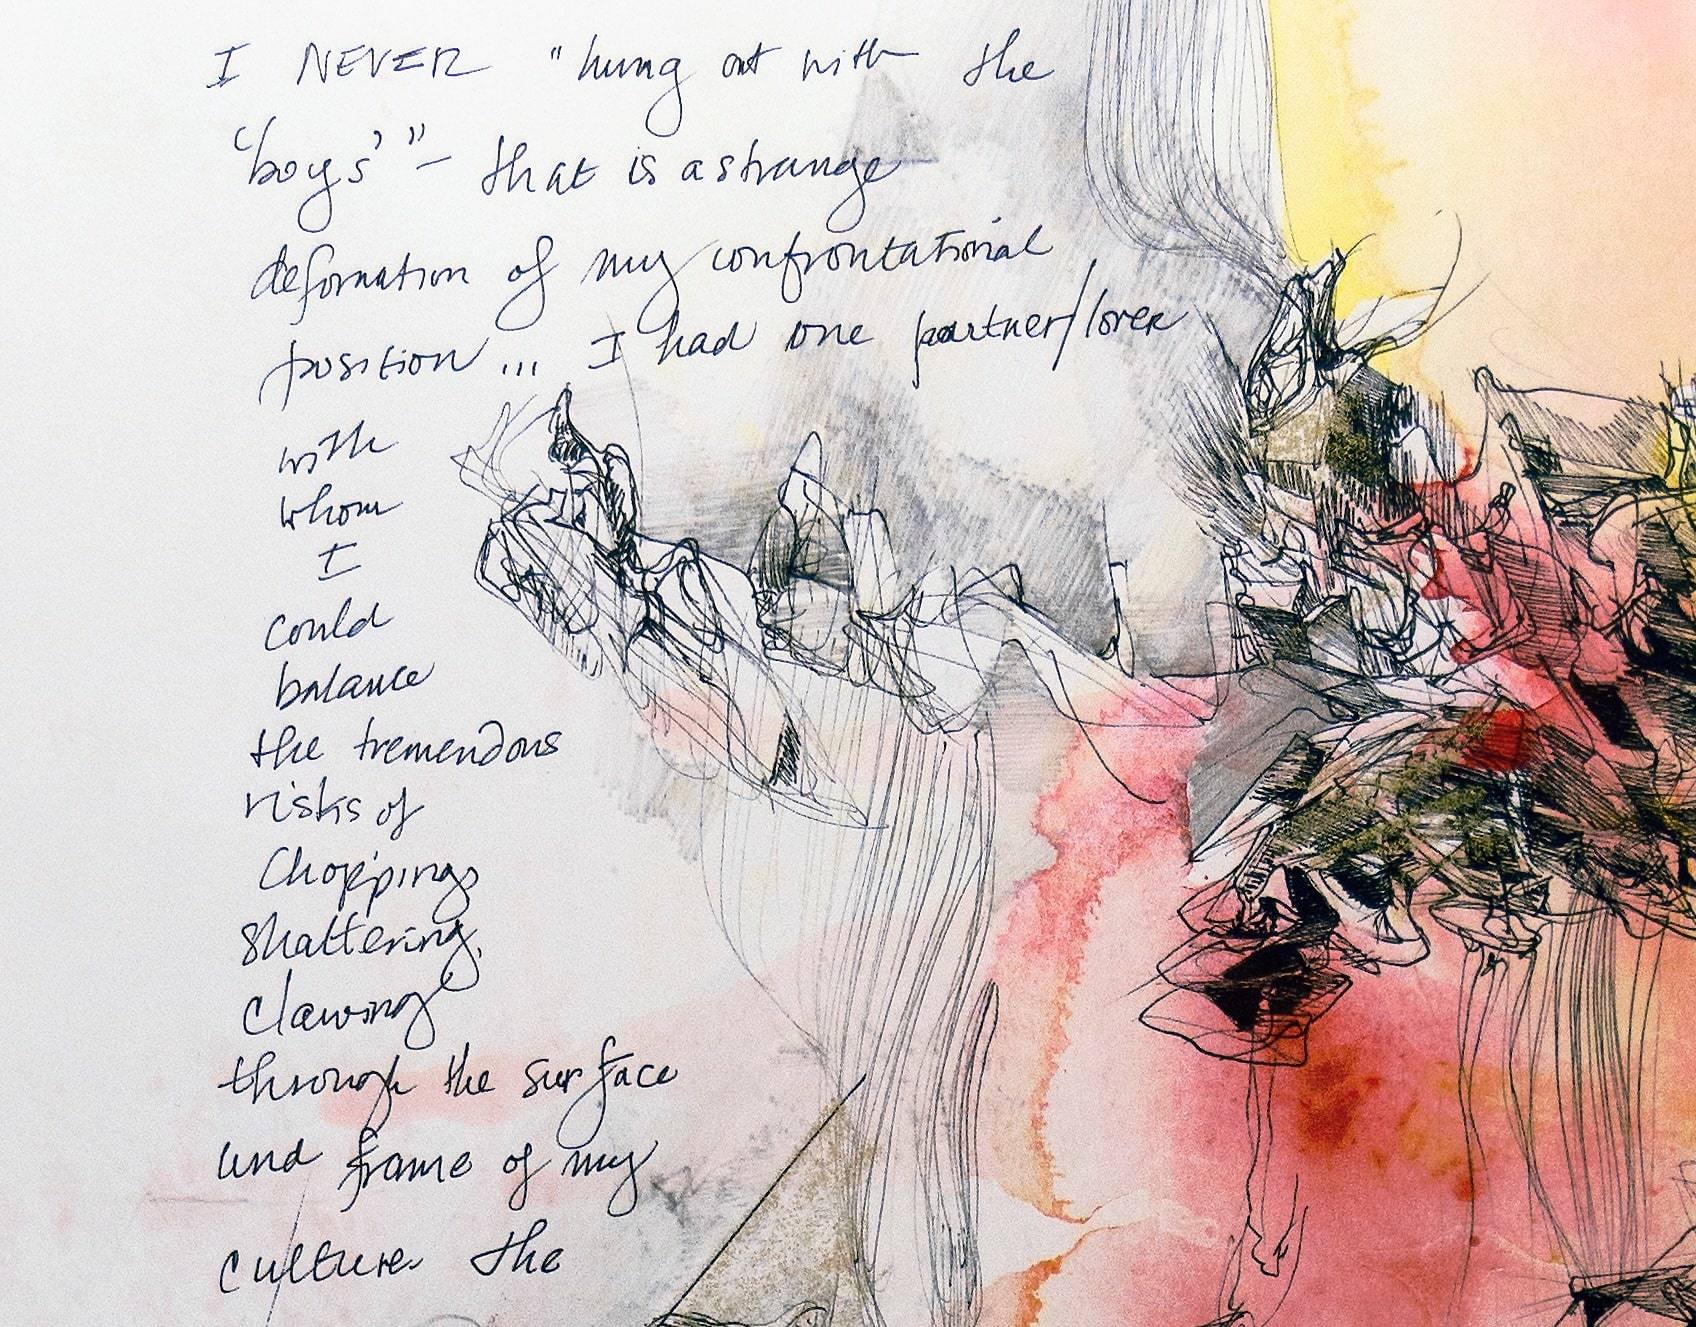 I NEVER "hung out with the
'boys'" – that is a strange
deformation of my confrontational
position... I had one partner/lover
with
whom
I
could
balance
the tremendous
risks of
Chopping,
shattering,
clawing
through the surface
and frame of my
culture. the